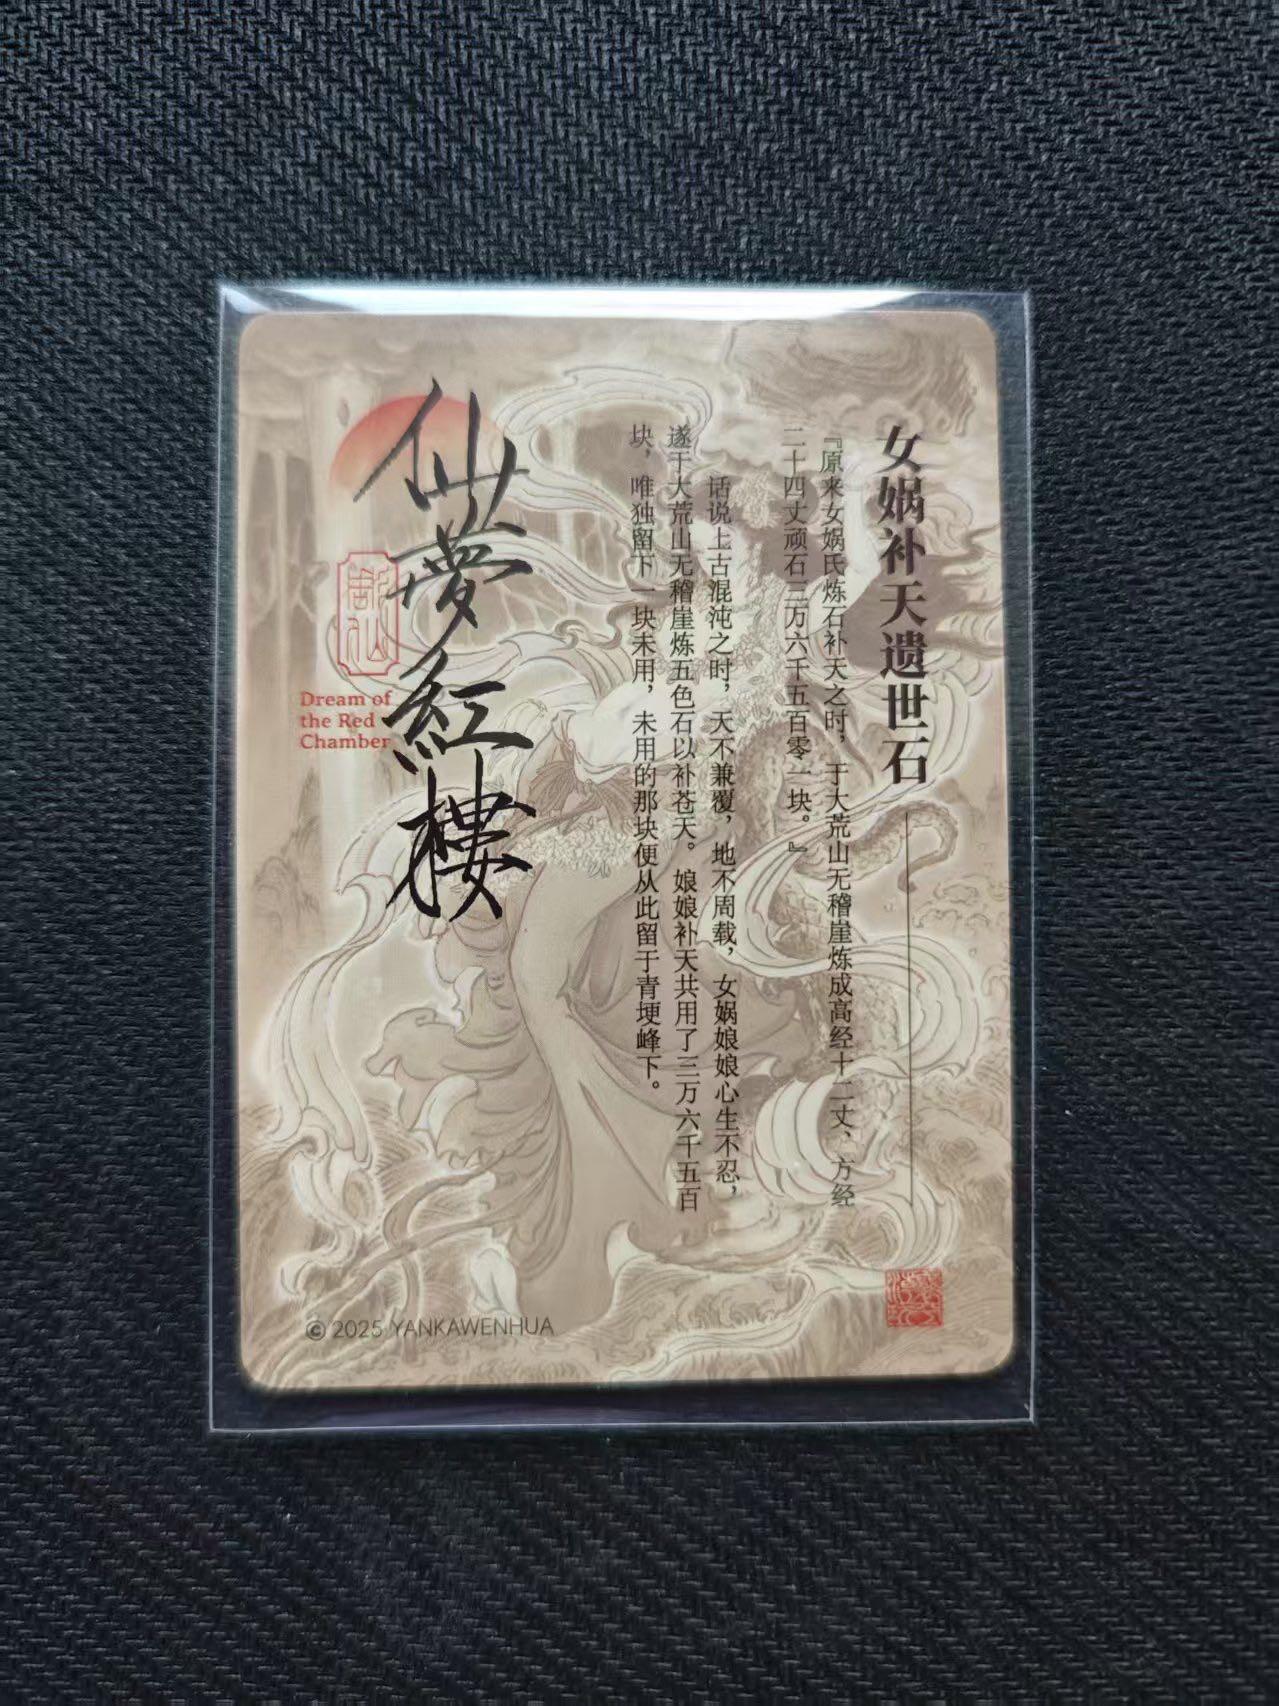 女娲补天遗世石
『原来女娲氏炼石补天之时，于大荒山无稽崖炼成高经十二丈、方经
二十四丈顽石三万六千五百零一块。』
话说上古混沌之时，天不兼覆，地不周载，女娲娘娘心生不忍，
遂于大荒山无稽崖炼五色石以补苍天。娘娘补天共用了三万六千五百
块，唯独留下一块未用，未用的那块便从此留于青埂峰下。
仙夢紅樓
Dream of
the Red
Chamber
© 2025 YANKAWENHUA